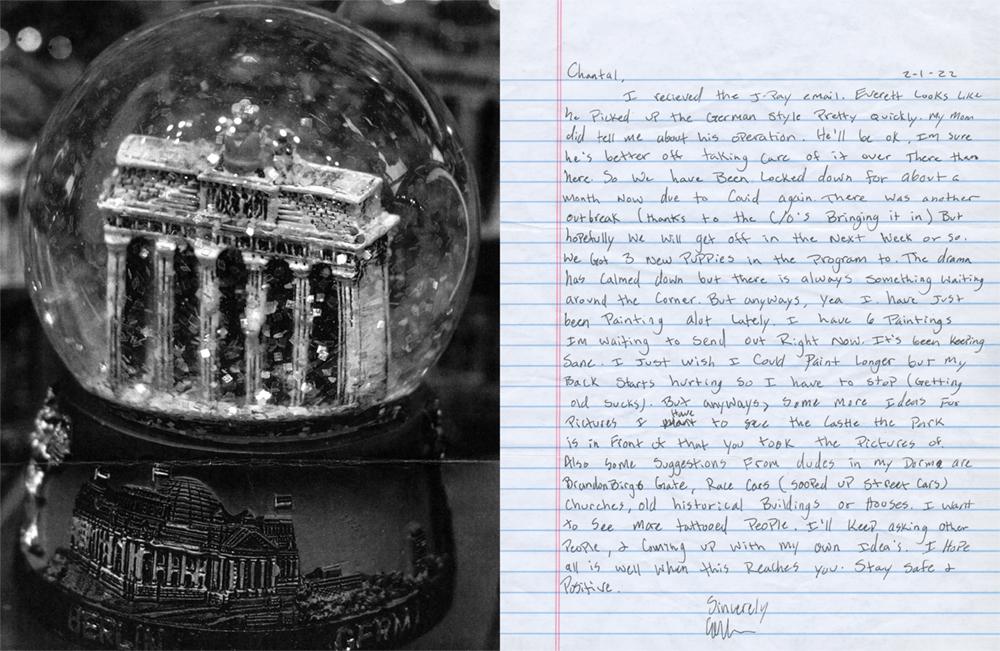 BERLIN GERM
Chantal, 2-1-22
I recieved the J-Pay email. Everett Looks Like
he Picked up the German Style Pretty quickly. My Mom
did tell me about his operation. He'll be ok, Im sure
he's better off taking Care of it over There then
here. So We have Been Locked down for about a
Month Now due to Covid again. There was another
outbreak (thanks to the C/O's Bringing it in) But
hopefully We will get off in the Next Week or so.
We Got 3 New Puppies in the Program to. The drama
has Calmed down but there is always Something Waiting
around the Corner. But anyways, Yea I have Just
been Painting alot Lately. I have 6 Paintings
Im waiting to Send out Right Now. It's been Keeping
Sane. I Just wish I Could Paint Longer but my
Back Starts hurting So I have to stop (Getting
old Sucks). But anyways, Some more Ideas For
Pictures I Have to see the Castle the Park
is in Front of that you took the Pictures of.
Also Some Suggestions From dudes in my Dorm are
BrandonBirgs Gate, Race Cars (sooped up Street Cars)
Churches, old historical Buildings or Houses. I want
to See more tattooed People. I'll Keep asking other
People, & Coming up with my own Idea's. I Hope
all is well when this Reaches you. Stay Safe &
Positive.
Sincerely